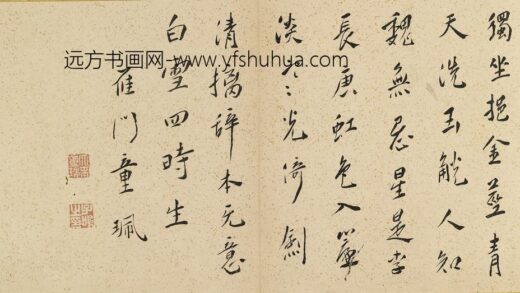 獨坐挹金莖青
天洗玉觥人知
魏無忌星是李
長庚虹色入簾
淡雲光倚劍
清摛辞本无意
白雪四時生
雁門童珮
远方书画网-www.yfshuhua.com